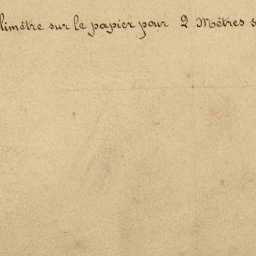 limètre sur le papier pour 2 Mètres s